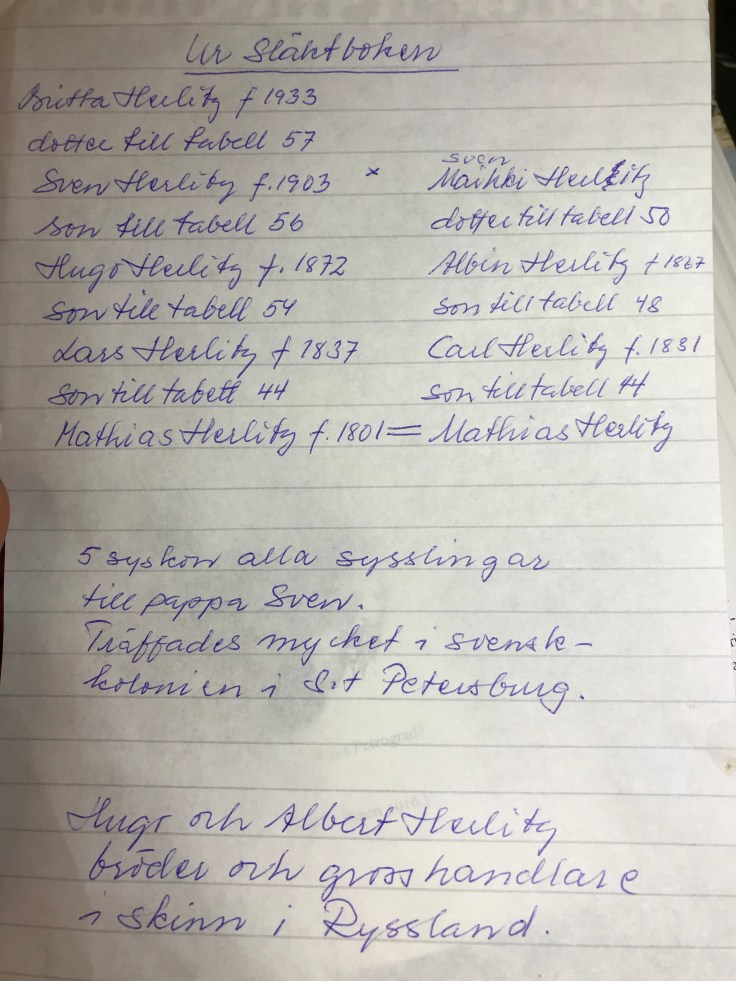 Ur Släktboken
Britta Herlitz f 1933
dotter till tabell 57
Sven Herlitz f. 1903 x sven Maikki Herlitz
son till tabell 56 dotter till tabell 50
Hugo Herlitz f. 1872 Albin Herlitz f 1867
Son till tabell 54 Son till tabell 48
Lars Herlitz f 1837 Carl Herlitz f. 1831
Son till tabell 44 son till tabell 44
Mathias Herlitz f. 1801 = Mathias Herlitz
5 syskon alla sysslingar
till pappa Sven.
Träffades mycket i svensk-
kolonien i S:t Petersburg.
Hugo och Albert Herlitz
bröder och grosshandlare
i skinn i Ryssland.